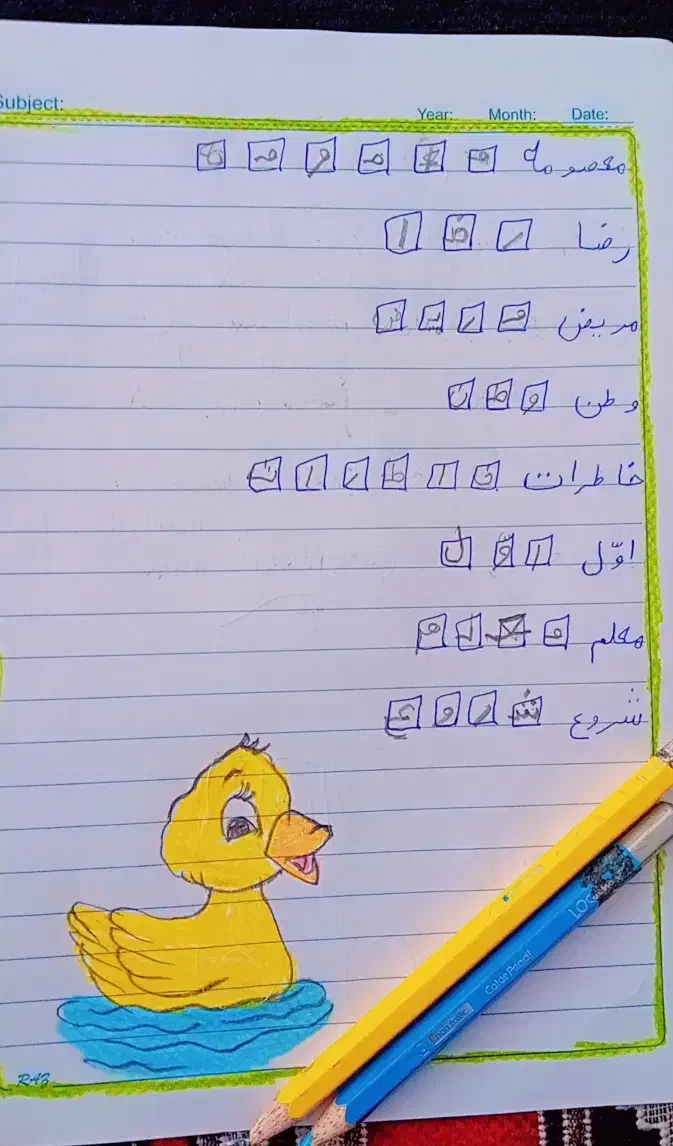 Subject:
Year: Month: Date:
معصومه م ع ص و م ه
رضا ر ضا ا
مریض م ر یـ ض
وطن و ط ن
خاطرات خ ا ط ر ا ت
اوّل ا وّ ل
معلم م ـعـ لـ م
شروع شـ ر و ع
Color Pencil
RAZ